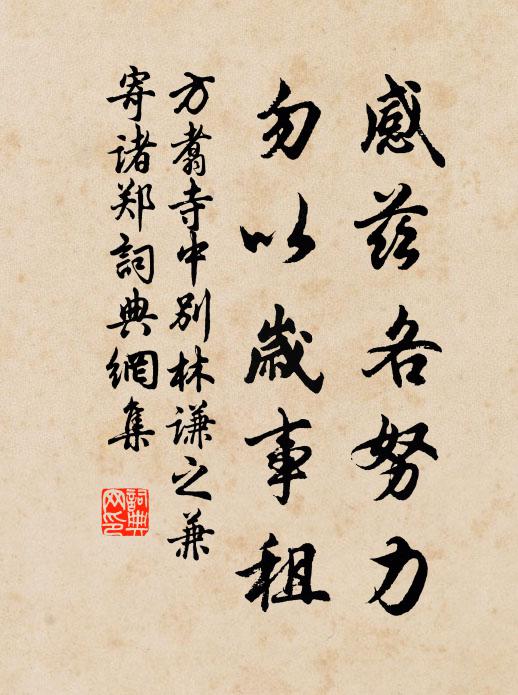 感茲各努力
勿以歲事租
方翥寺中别林谦之兼
寄诸郑詞典網集
詞典
网印